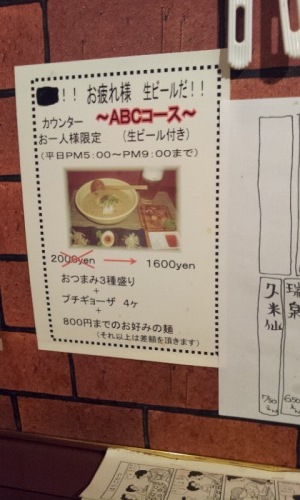 ！！ お疲れ様 生ビールだ！！
～ABCコース～
カウンター
お一人様限定 （生ビール付き）
（平日PM5：00～PM9：00まで）
2000yen → 1600yen
おつまみ3種盛り
+
プチギョーザ 4ヶ
+
800円までのお好みの麺
（それ以上は差額を頂きます）
瑞泉
久米仙